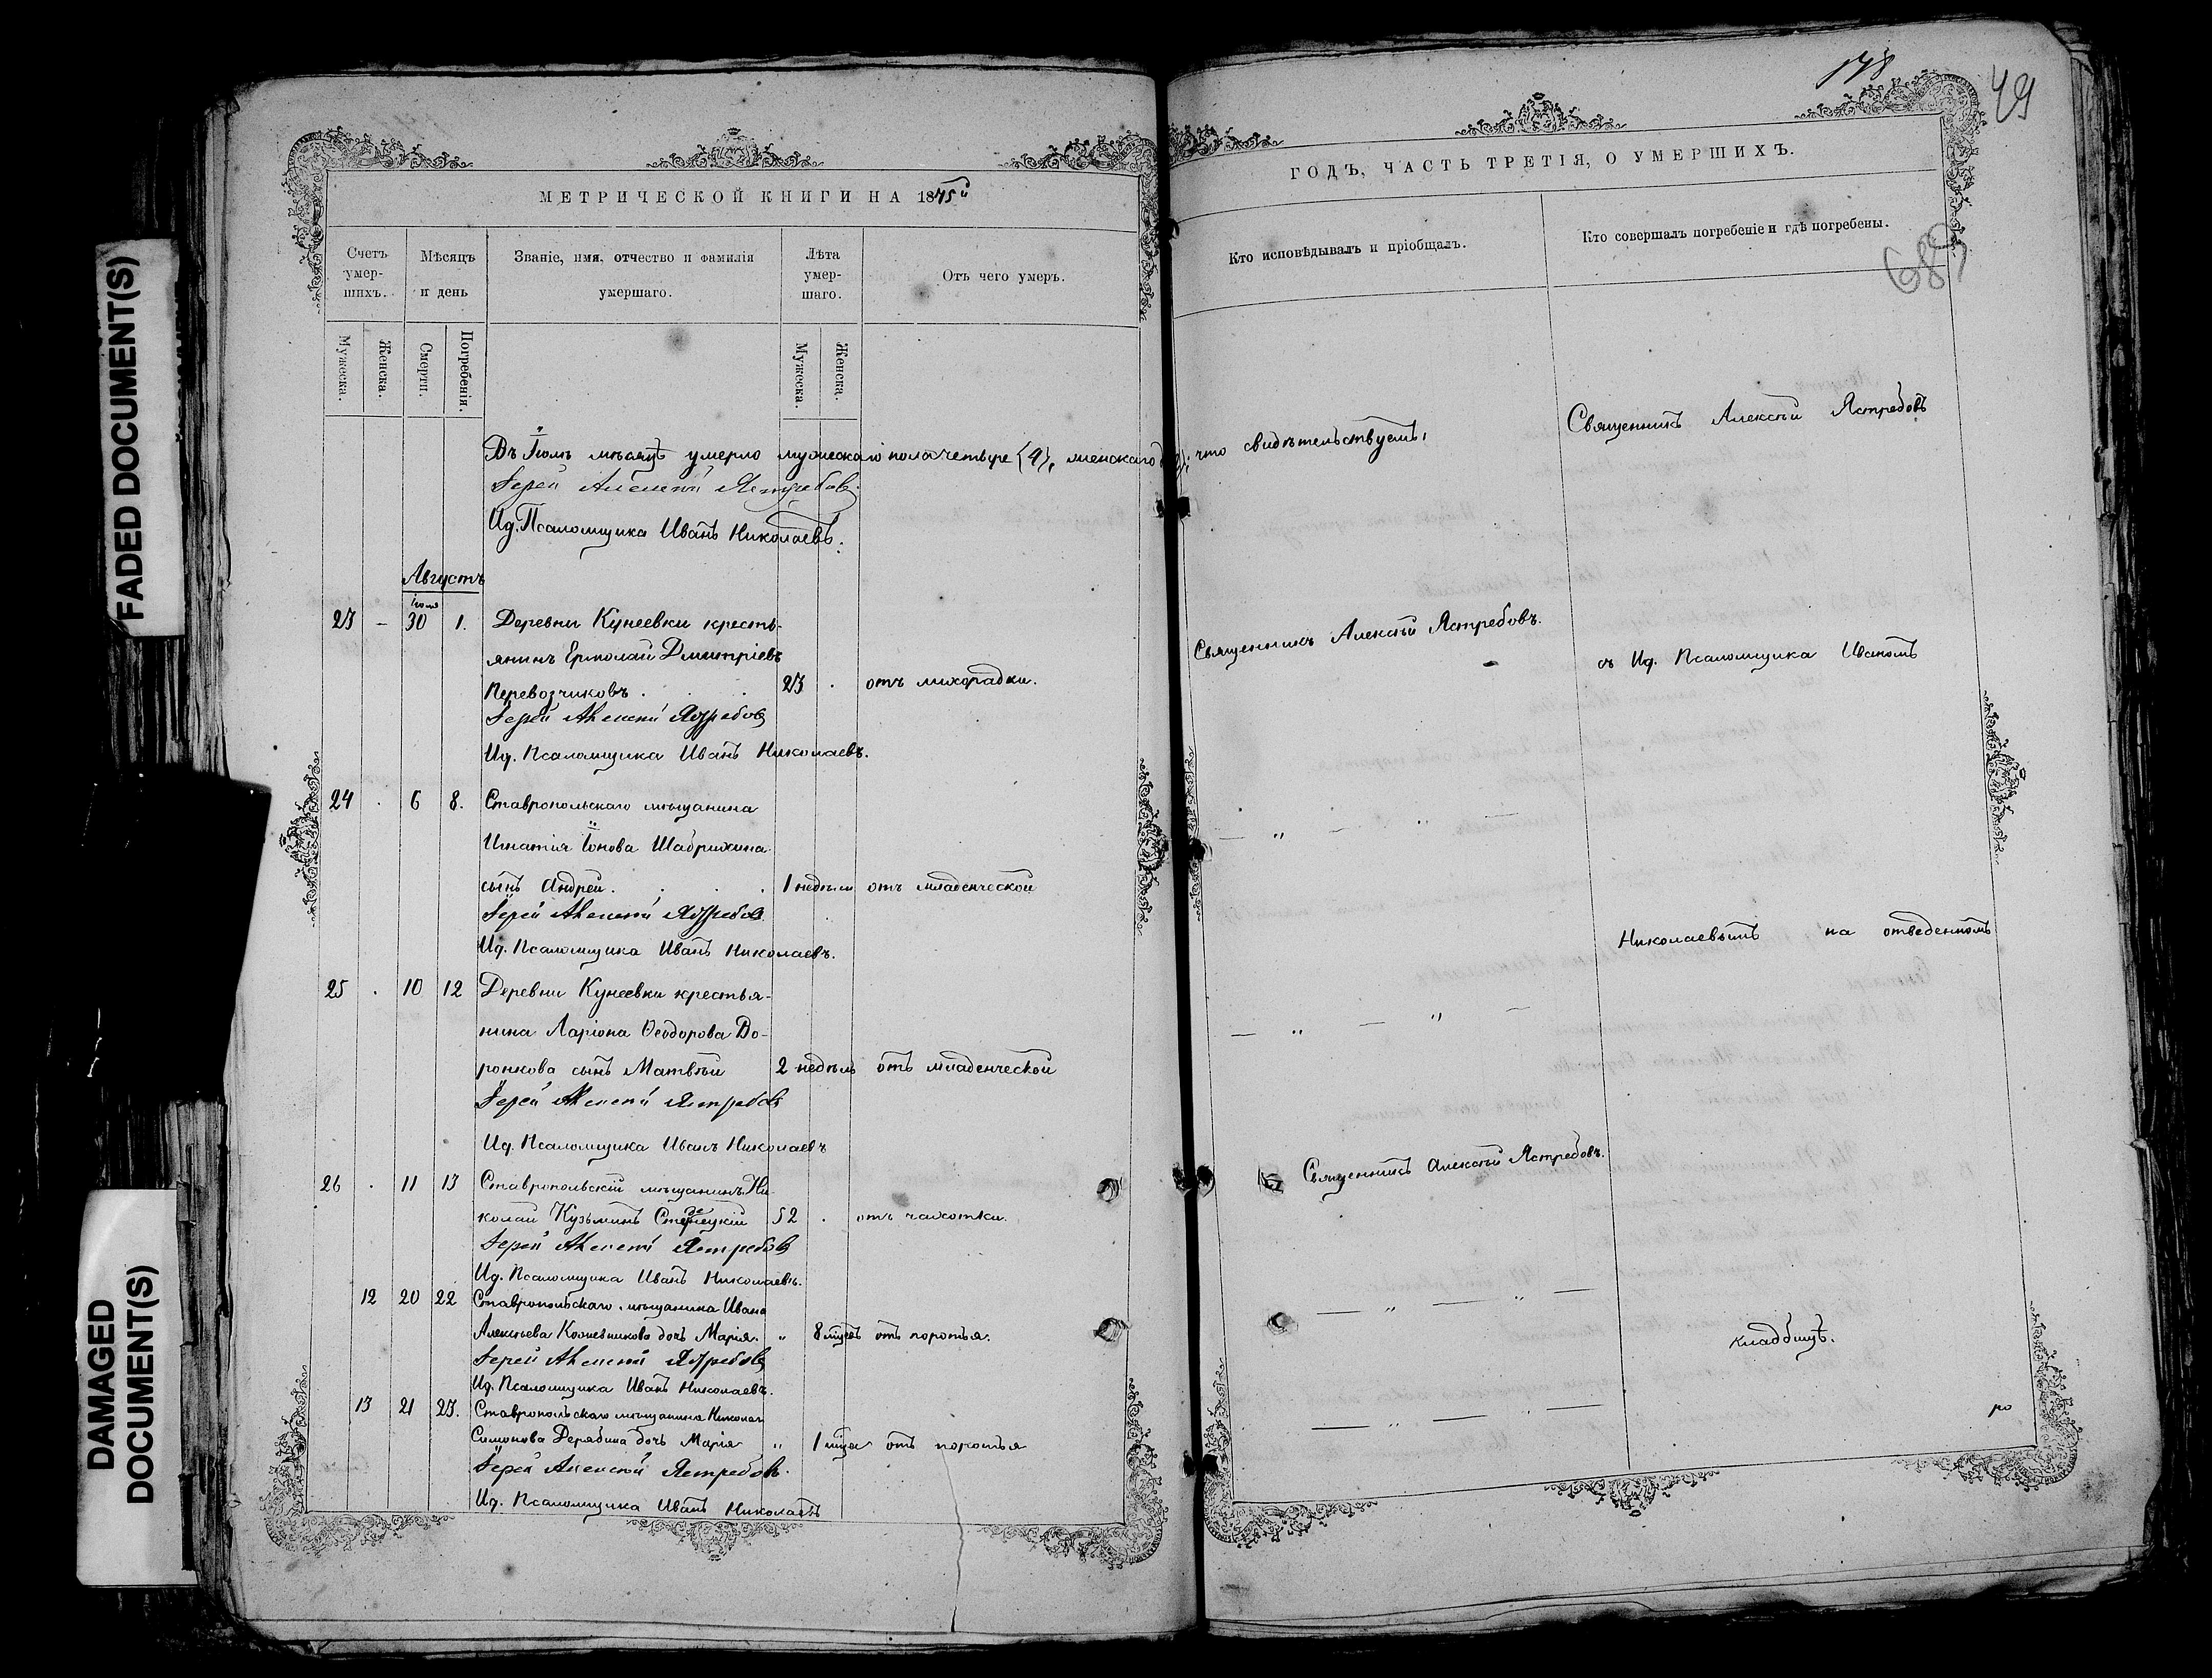 FADED DOCUMENT(S)
DAMAGED
DOCUMENT(S)
МЕТРИЧЕСКОЙ КНИГИ НА 1875й
Счетъ умер-шихъ.
Мѣсяцъ и день
Званіе, имя, отчество и фамилія умершаго.
Лѣта умер-шаго.
Отъ чего умеръ.
Мужеска.
Женска.
Смерти.
Погребенія.
Мужеска.
Женска.
Въ Іюлѣ мѣсяцѣ умерло мужескаго пола четыре (4), женскаго
Іерей Алексѣй Ястребовъ
Ид. Псаломщика Иванъ Николаевъ.
Августъ
іюля
23 – 30 1. Деревни Кунеевки кресть-
янинъ Ермолай Дмитріевъ
Перевозчиковъ . . . 23 . отъ лихорадки.
Іерей Алексѣй Ястребовъ
Ид. Псаломщика Иванъ Николаевъ.
24 . 6 8. Ставропольскаго мѣщанина
Игнатія Іонова Шабрихина
сынъ Андрей . . . 1 недѣли отъ младенческой
Іерей Алексѣй Ястребовъ
Ид. Псаломщика Иванъ Николаевъ.
25 . 10 12 Деревни Кунеевки крестья-
нина Ларіона Ѳеодорова Во-
ронкова сынъ Матвѣй 2 недѣль отъ младенческой
Іерей Алексѣй Ястребовъ
Ид. Псаломщика Иванъ Николаевъ
26 . 11 13 Ставропольскій мѣщанинъ Ни-
колай Кузьминъ 52 . отъ чахотки.
Іерей Алексѣй Ястребовъ
Ид. Псаломщика Иванъ Николаевъ.
12 20 22 Ставропольскаго мѣщанина Ивана
Алексѣева Кожевникова дочь Марія. „ 8 мцевъ отъ поротья.
Іерей Алексѣй Ястребовъ
Ид. Псаломщика Иванъ Николаевъ.
13 21 23. Ставропольскаго мѣщанина Николая
Симонова Дерябина дочь Марія „ 1 мца отъ поротья
Іерей Алексѣй Ястребовъ.
Ид. Псаломщика Иванъ Николаевъ
49
ГОДЪ, ЧАСТЬ ТРЕТІЯ, О УМЕРШИХЪ.
Кто исповѣдывалъ и пріобщалъ.
Кто совершалъ погребеніе и гдѣ погребены.
689
что свидѣтельствуемъ,
Священникъ Алексѣй Ястребовъ
Священникъ Алексѣй Ястребовъ.
съ Ид. Псаломщика Иваномъ
— „ — „ —
Николаевымъ на отведенномъ
— „ — „ —
Священникъ Алексѣй Ястребовъ.
— „ — „ —
кладбищѣ.
— „ — „ —
ро